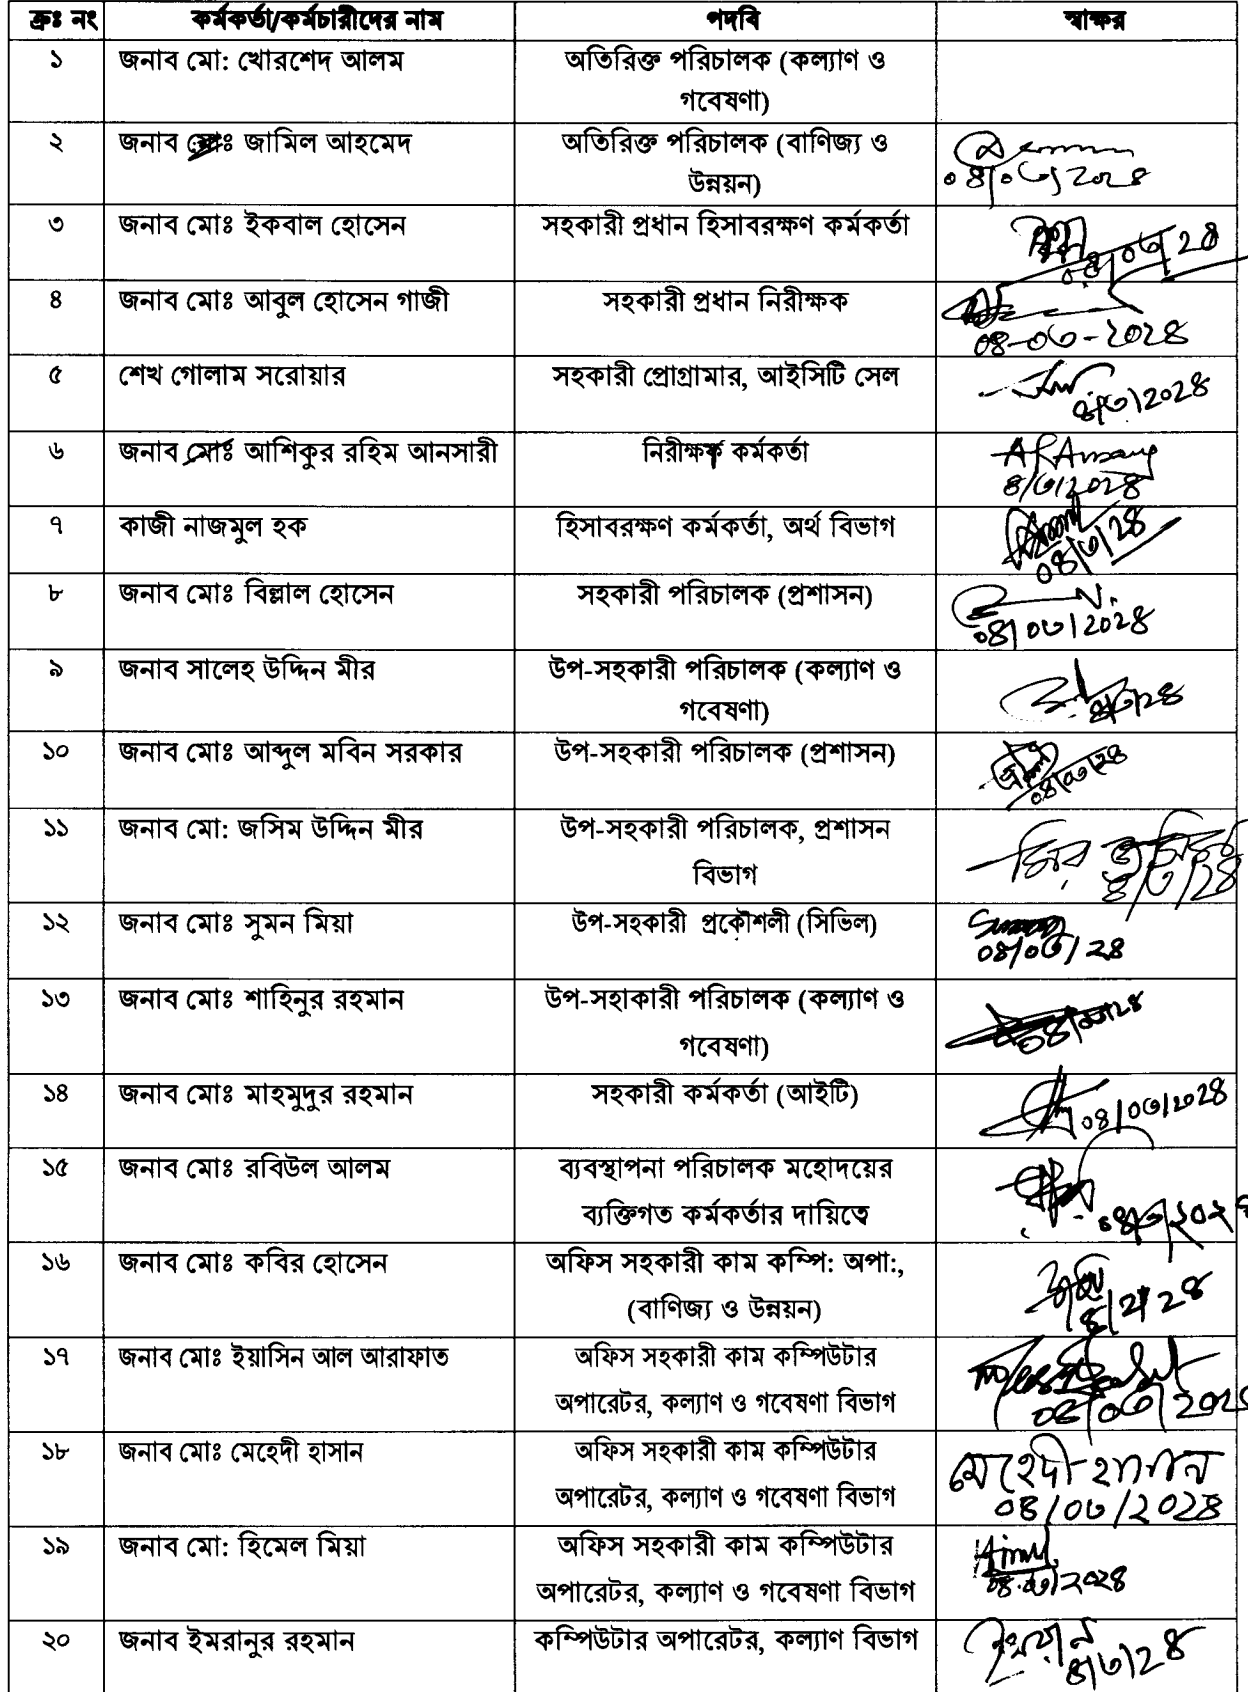 ক্রঃ নং কর্মকর্তা/কর্মচারীদের নাম পদবি স্বাক্ষর
১ জনাব মো: খোরশেদ আলম অতিরিক্ত পরিচালক (কল্যাণ ও
গবেষণা)
২ জনাব মোঃ জামিল আহমেদ অতিরিক্ত পরিচালক (বাণিজ্য ও
উন্নয়ন)
০৪/০৩/২০২৪
৩ জনাব মোঃ ইকবাল হোসেন সহকারী প্রধান হিসাবরক্ষণ কর্মকর্তা
০৪/০৩/২৪
৪ জনাব মোঃ আবুল হোসেন গাজী সহকারী প্রধান নিরীক্ষক
০৪-০৩-২০২৪
৫ শেখ গোলাম সরোয়ার সহকারী প্রোগ্রামার, আইসিটি সেল
৪/৩/২০২৪
৬ জনাব মোঃ আশিকুর রহিম আনসারী নিরীক্ষক কর্মকর্তা ARAnsary
৪/৩/২০২৪
৭ কাজী নাজমুল হক হিসাবরক্ষণ কর্মকর্তা, অর্থ বিভাগ
০৪/৩/২৪
৮ জনাব মোঃ বিল্লাল হোসেন সহকারী পরিচালক (প্রশাসন)
০৪/০৩/২০২৪
৯ জনাব সালেহ উদ্দিন মীর উপ-সহকারী পরিচালক (কল্যাণ ও
গবেষণা) ৪/৩/২৪
১০ জনাব মোঃ আব্দুল মবিন সরকার উপ-সহকারী পরিচালক (প্রশাসন)
০৪/০৩/২৪
১১ জনাব মো: জসিম উদ্দিন মীর উপ-সহকারী পরিচালক, প্রশাসন
বিভাগ ৪/৩/২৪
১২ জনাব মোঃ সুমন মিয়া উপ-সহকারী প্রকৌশলী (সিভিল)
০৪/০৩/২৪
১৩ জনাব মোঃ শাহিনুর রহমান উপ-সহাকারী পরিচালক (কল্যাণ ও
গবেষণা) ০৪/০৩/২৪
১৪ জনাব মোঃ মাহমুদুর রহমান সহকারী কর্মকর্তা (আইটি) ০৪/০৩/২০২৪
১৫ জনাব মোঃ রবিউল আলম ব্যবস্থাপনা পরিচালক মহোদয়ের
ব্যক্তিগত কর্মকর্তার দায়িত্বে ০৪/৩/২০২৪
১৬ জনাব মোঃ কবির হোসেন অফিস সহকারী কাম কম্পি: অপা:,
(বাণিজ্য ও উন্নয়ন)
১৭ জনাব মোঃ ইয়াসিন আল আরাফাত অফিস সহকারী কাম কম্পিউটার
অপারেটর, কল্যাণ ও গবেষণা বিভাগ ০৪/০৩/২০২৪
১৮ জনাব মোঃ মেহেদী হাসান অফিস সহকারী কাম কম্পিউটার মেহেদী হাসান
অপারেটর, কল্যাণ ও গবেষণা বিভাগ ০৪/০৩/২০২৪
১৯ জনাব মো: হিমেল মিয়া অফিস সহকারী কাম কম্পিউটার
অপারেটর, কল্যাণ ও গবেষণা বিভাগ ০৪.০৩/২০২৪
২০ জনাব ইমরানুর রহমান কম্পিউটার অপারেটর, কল্যাণ বিভাগ
৪/৩/২৪